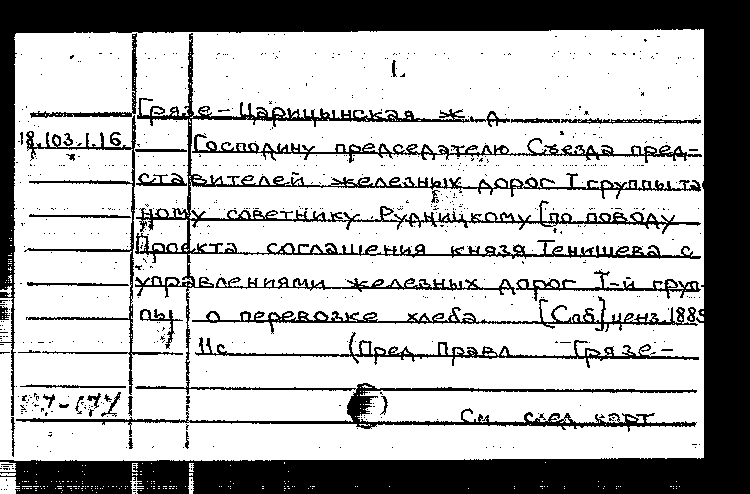 1.
Грязе-Царицынская ж. д.
18.103.1.16. Господину председателю Съезда пред-
ставителей железных дорог I группы та
ному советнику Рудницкому [по поводу
Проекта соглашения князя Тенишева с
управлениями железных дорог I-й груп-
пы о перевозке хлеба. [Спб], ценз. 1885
11с (Пред. Правл Грязе-
См след карт